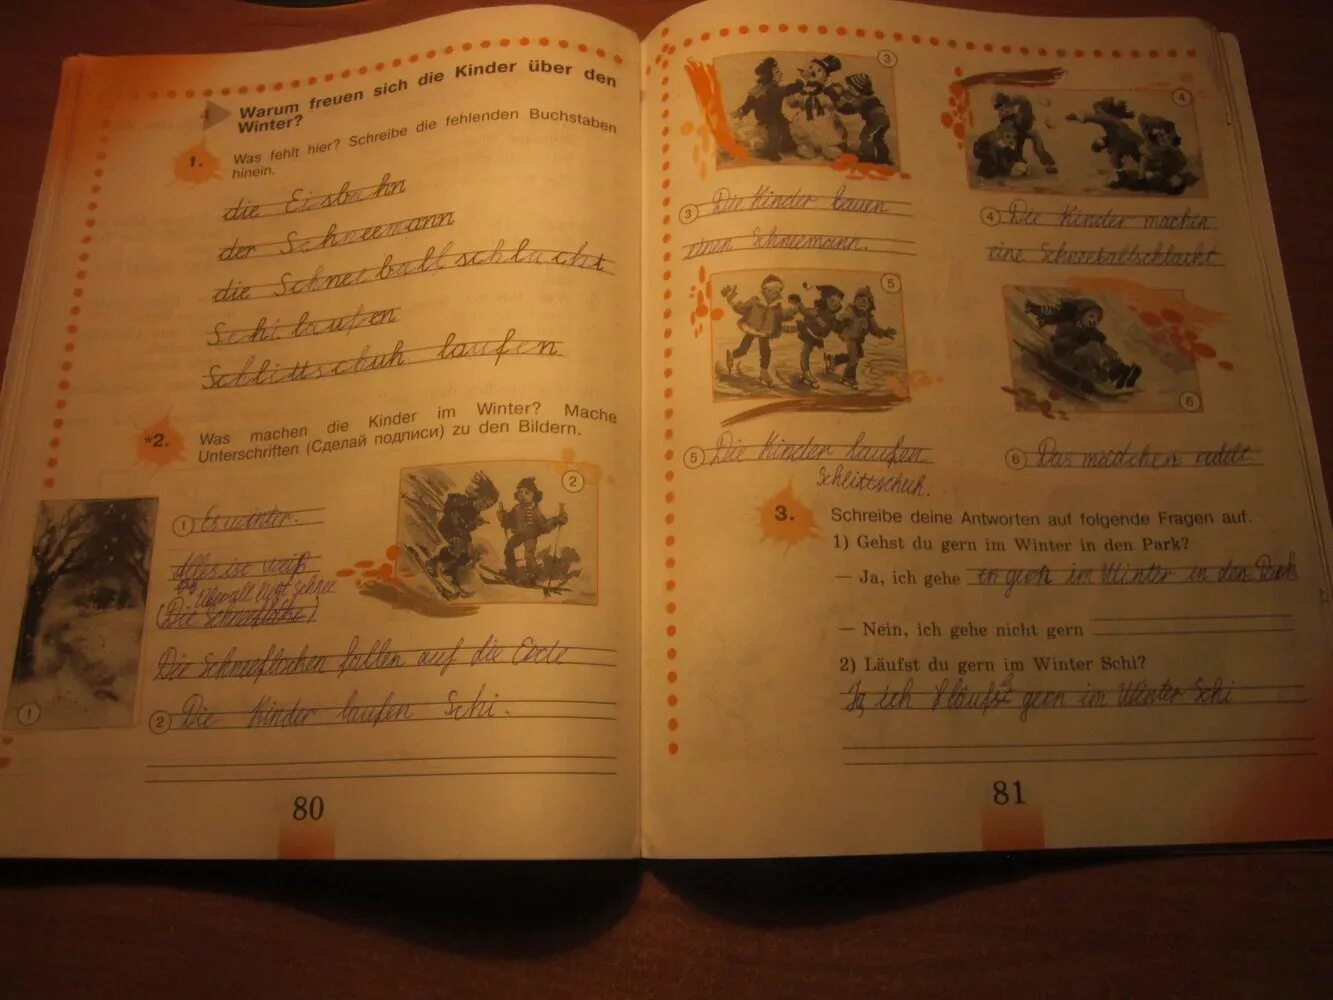 Warum freuen sich die Kinder über den
Winter?
1. Was fehlt hier? Schreibe die fehlenden Buchstaben
hinein.
die Eisbahn
der Schneemann
die Schneeballschlacht
Schi laufen
Schlittschuh laufen
*2. Was machen die Kinder im Winter? Mache
Unterschriften (Сделай подписи) zu den Bildern.
1 Es winter.
Alles ist weiß
Überall liegt Schnee
(Die Schneeflocke)
Die Schneeflocken fallen auf die Erde
2 Die Kinder laufen Schi.
1
2
80
3
4
3 Die Kinder bauen
einen Schneemann.
4 Die Kinder machen
eine Schneeballschlacht
5
6
5 Die Kinder laufen
Schlittschuh.
6 Das mädchen rodelt.
3. Schreibe deine Antworten auf folgende Fragen auf.
1) Gehst du gern im Winter in den Park?
– Ja, ich gehe gern im Winter in den Park
– Nein, ich gehe nicht gern
2) Läufst du gern im Winter Schi?
Ja, ich gern im Winter Schi
81